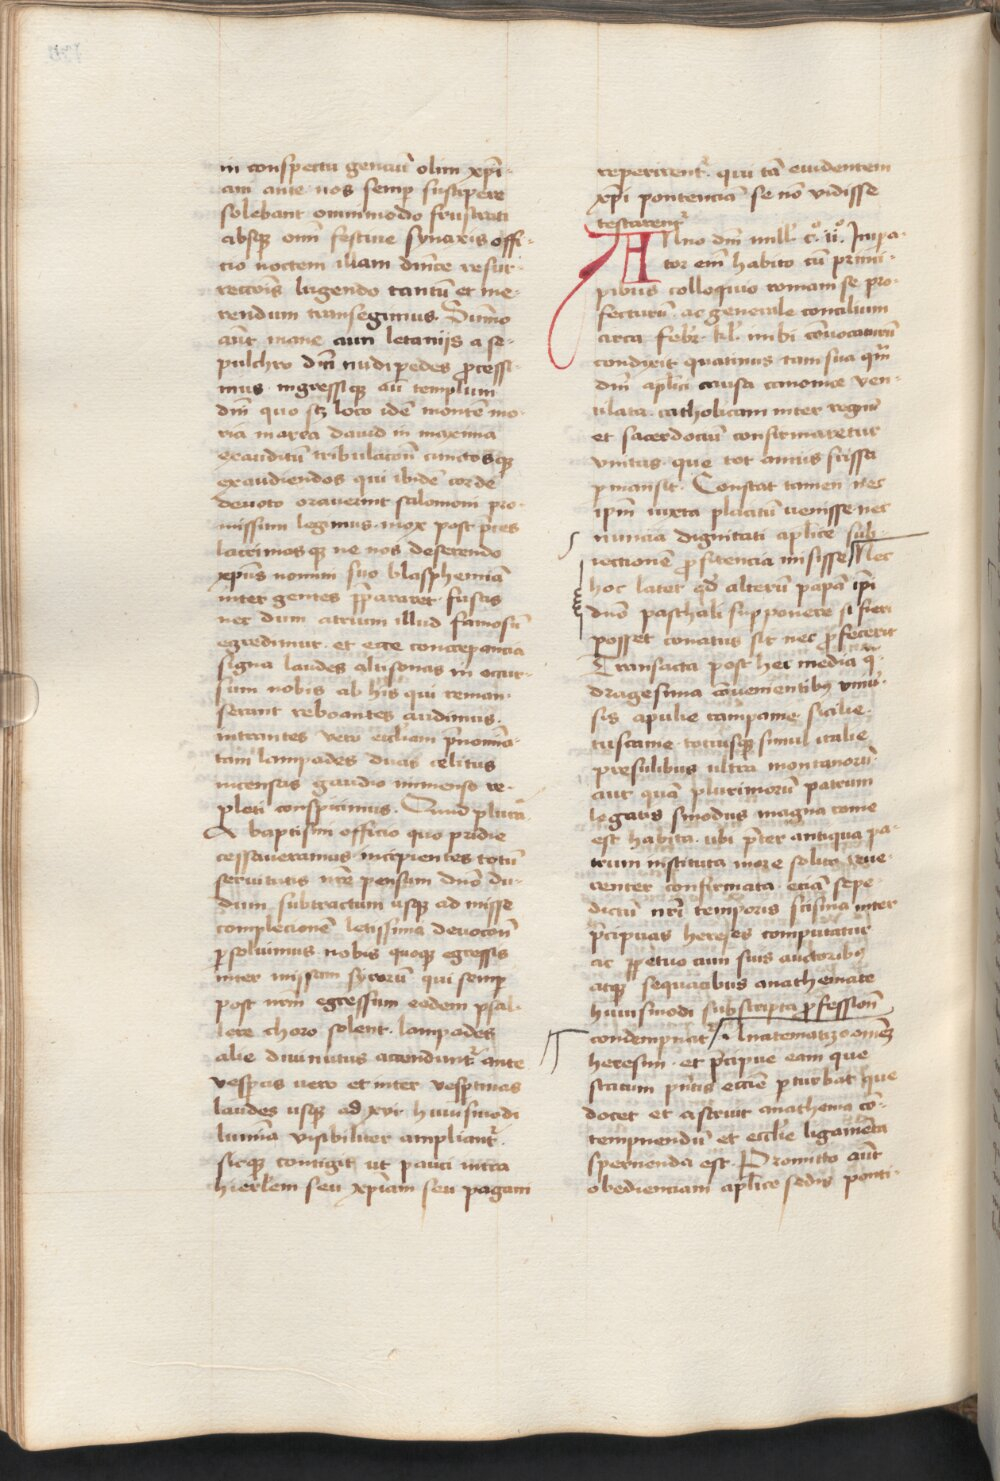 in conspectu genciū olim xp̄i-
ani ante nos semp suscipere
solebant omnimodo frustrati
absq; om̄i festiue synaxis offi-
cio noctem illam dnīce resur-
reccoīs lugendo tantū et me-
rendum transegimus. Sūmo
aūt mane cum letanijs a se-
pulchro dn̄i nudi pedes processi-
mus. ingressiq; aū templum
dn̄i quo sꝫ loco idē montē mo-
ria in area dauid in maxima
exauditū tribulacōn̄ cunctosq;
exaudiendos qui ibidē corde
deuoto orauerint salomoni pro-
missum legimus. mox post p̄ces
lacrimasq; ne nos deserendo
xp̄us nomini suo blasphemiā
inter gentes p̱pararet fusas
nec dum atrium illud famosū
egredimur. et ecce concrepancia
signa laudes altisonas in occur-
sum nobis ab his qui reman-
serant reboantes audimus.
intrantes vero eccl̄iem p̄nomīa-
tam lampades duas celitus
incensas gaudio immenso re-
pleti conspicimus. Quid plura.
A baptismi officio quo pridie
cessaueramus incipientes totū
seruitutis nr̄e pensum dn̄o du-
dum subtractum usq; ad misse
complecionē letissima deuocōn̄
psoluimus. nobis quoq; egressis
inter missam syrorū qui semp
post nr̄m egressum eodem psal-
lere choro solent. lampades
alie diuinitus accendunt̄ ante
vesperas uero et inter vesptinas
laudes usq; ad xvi. huiusmodi
lumīa visibiliter ampliant̄.
sicq; contigit ut pauci intra
hierl̄em seu xp̄iani seu pagani
reperirent̄. qui tā euidentem
xp̄i potenciā se nō vidisse
testarent̄
Anno dn̄i mill̄. cº. iiº. Impa-
tor em̄ habito cū princi-
pibus colloquio romam se pro-
fecturū. ac generale concilium
circa febr̄. kl̄. inibi cōuocaturū
condixit quatinus tam sua qm̄
dn̄i apl̄ici causa canonice ven-
tilata. catholicam inter regnū
et sacerdociū confirmaretur
vnitas. que tot annis scissa
pmansit. Constat tamen nec
ipm̄ iuxta placitū uenisse nec
nuncia dignitati apl̄ice sub-
iectionē profitencia misisse Nec
hoc latet qd̄ alterū papā ip̄i
dn̄o paschali supponere si fieri
posset conatus sit nec profecerit
Transacta post hec media q̄-
dragesima cōuenientibꝫ vniu̇-
sis apulie campanie. sicilie.
tuscanie. tociusq; simul italie
presulibus ultra montanorū
aut quā plurimorū patrum
legatis sinodus magna rome
est habita. ubi p̄ter antiqua pa-
trum instituta more solito reue-
renter confirmata. eciā sepe-
dictū nr̄i temporis scisma inter
p̄cipuas hereses computatur
ac p̱petuo cum suis auctoribꝫ
atq; sequacibus anathemate
huiusmodi subscripta pfessiōn
condempnāt̄. Anatematizo omēꝫ
heresim. et p̄cipue eam que
statum pn̄tis eccīe pturbat que
docet et astruit anathema cō-
tempnendū et eccl̄ie ligamēta
spernenda est. Promitto aūt
obedienciam apl̄ice sedis ponti-